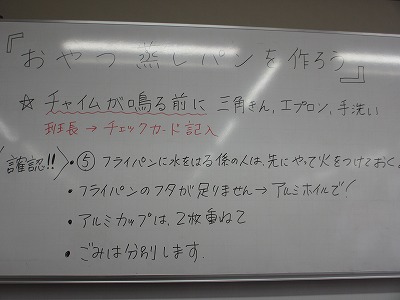 『おやつ蒸しパンを作ろう』
☆ チャイムが鳴る前に 三角きん、エプロン、手洗い
班長 → チェックカード記入
確認!! ・⑤ フライパンに水をはる係の人は、先にやって火をつけておく。
・フライパンのフタが足りません→アルミホイルで!
・アルミカップは、2枚重ねて
・ごみは分別します.